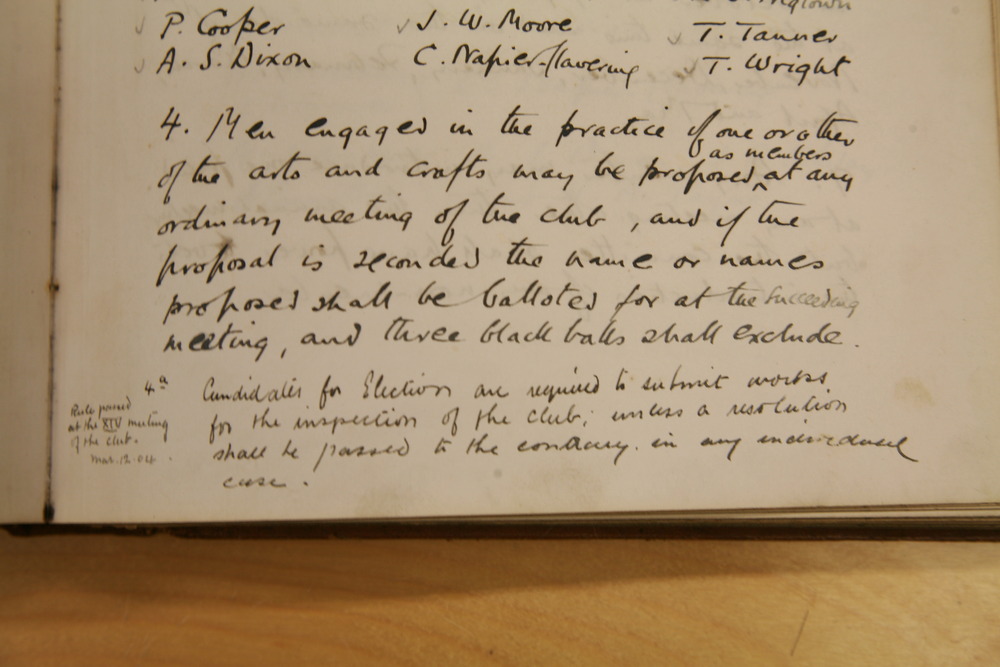 ✓ P. Cooper ✓ J. W. Moore ✓ T. Tanner
✓ A. S. Dixon C. Napier-Clavering ✓ T. Wright
4. Men engaged in the practice of one or other
as members
of the arts and crafts may be proposed ‸ at any
ordinary meeting of the club, and if the
proposal is seconded the name or names
proposed shall be balloted for at the succeeding
meeting, and three black balls shall exclude.
4a Candidates for Election are required to submit works
for the inspection of the Club; unless a resolution
shall be passed to the contrary. in any individual
case.
Rule passed
at the XIV meeting
of the club.
Mar. 12. 04.